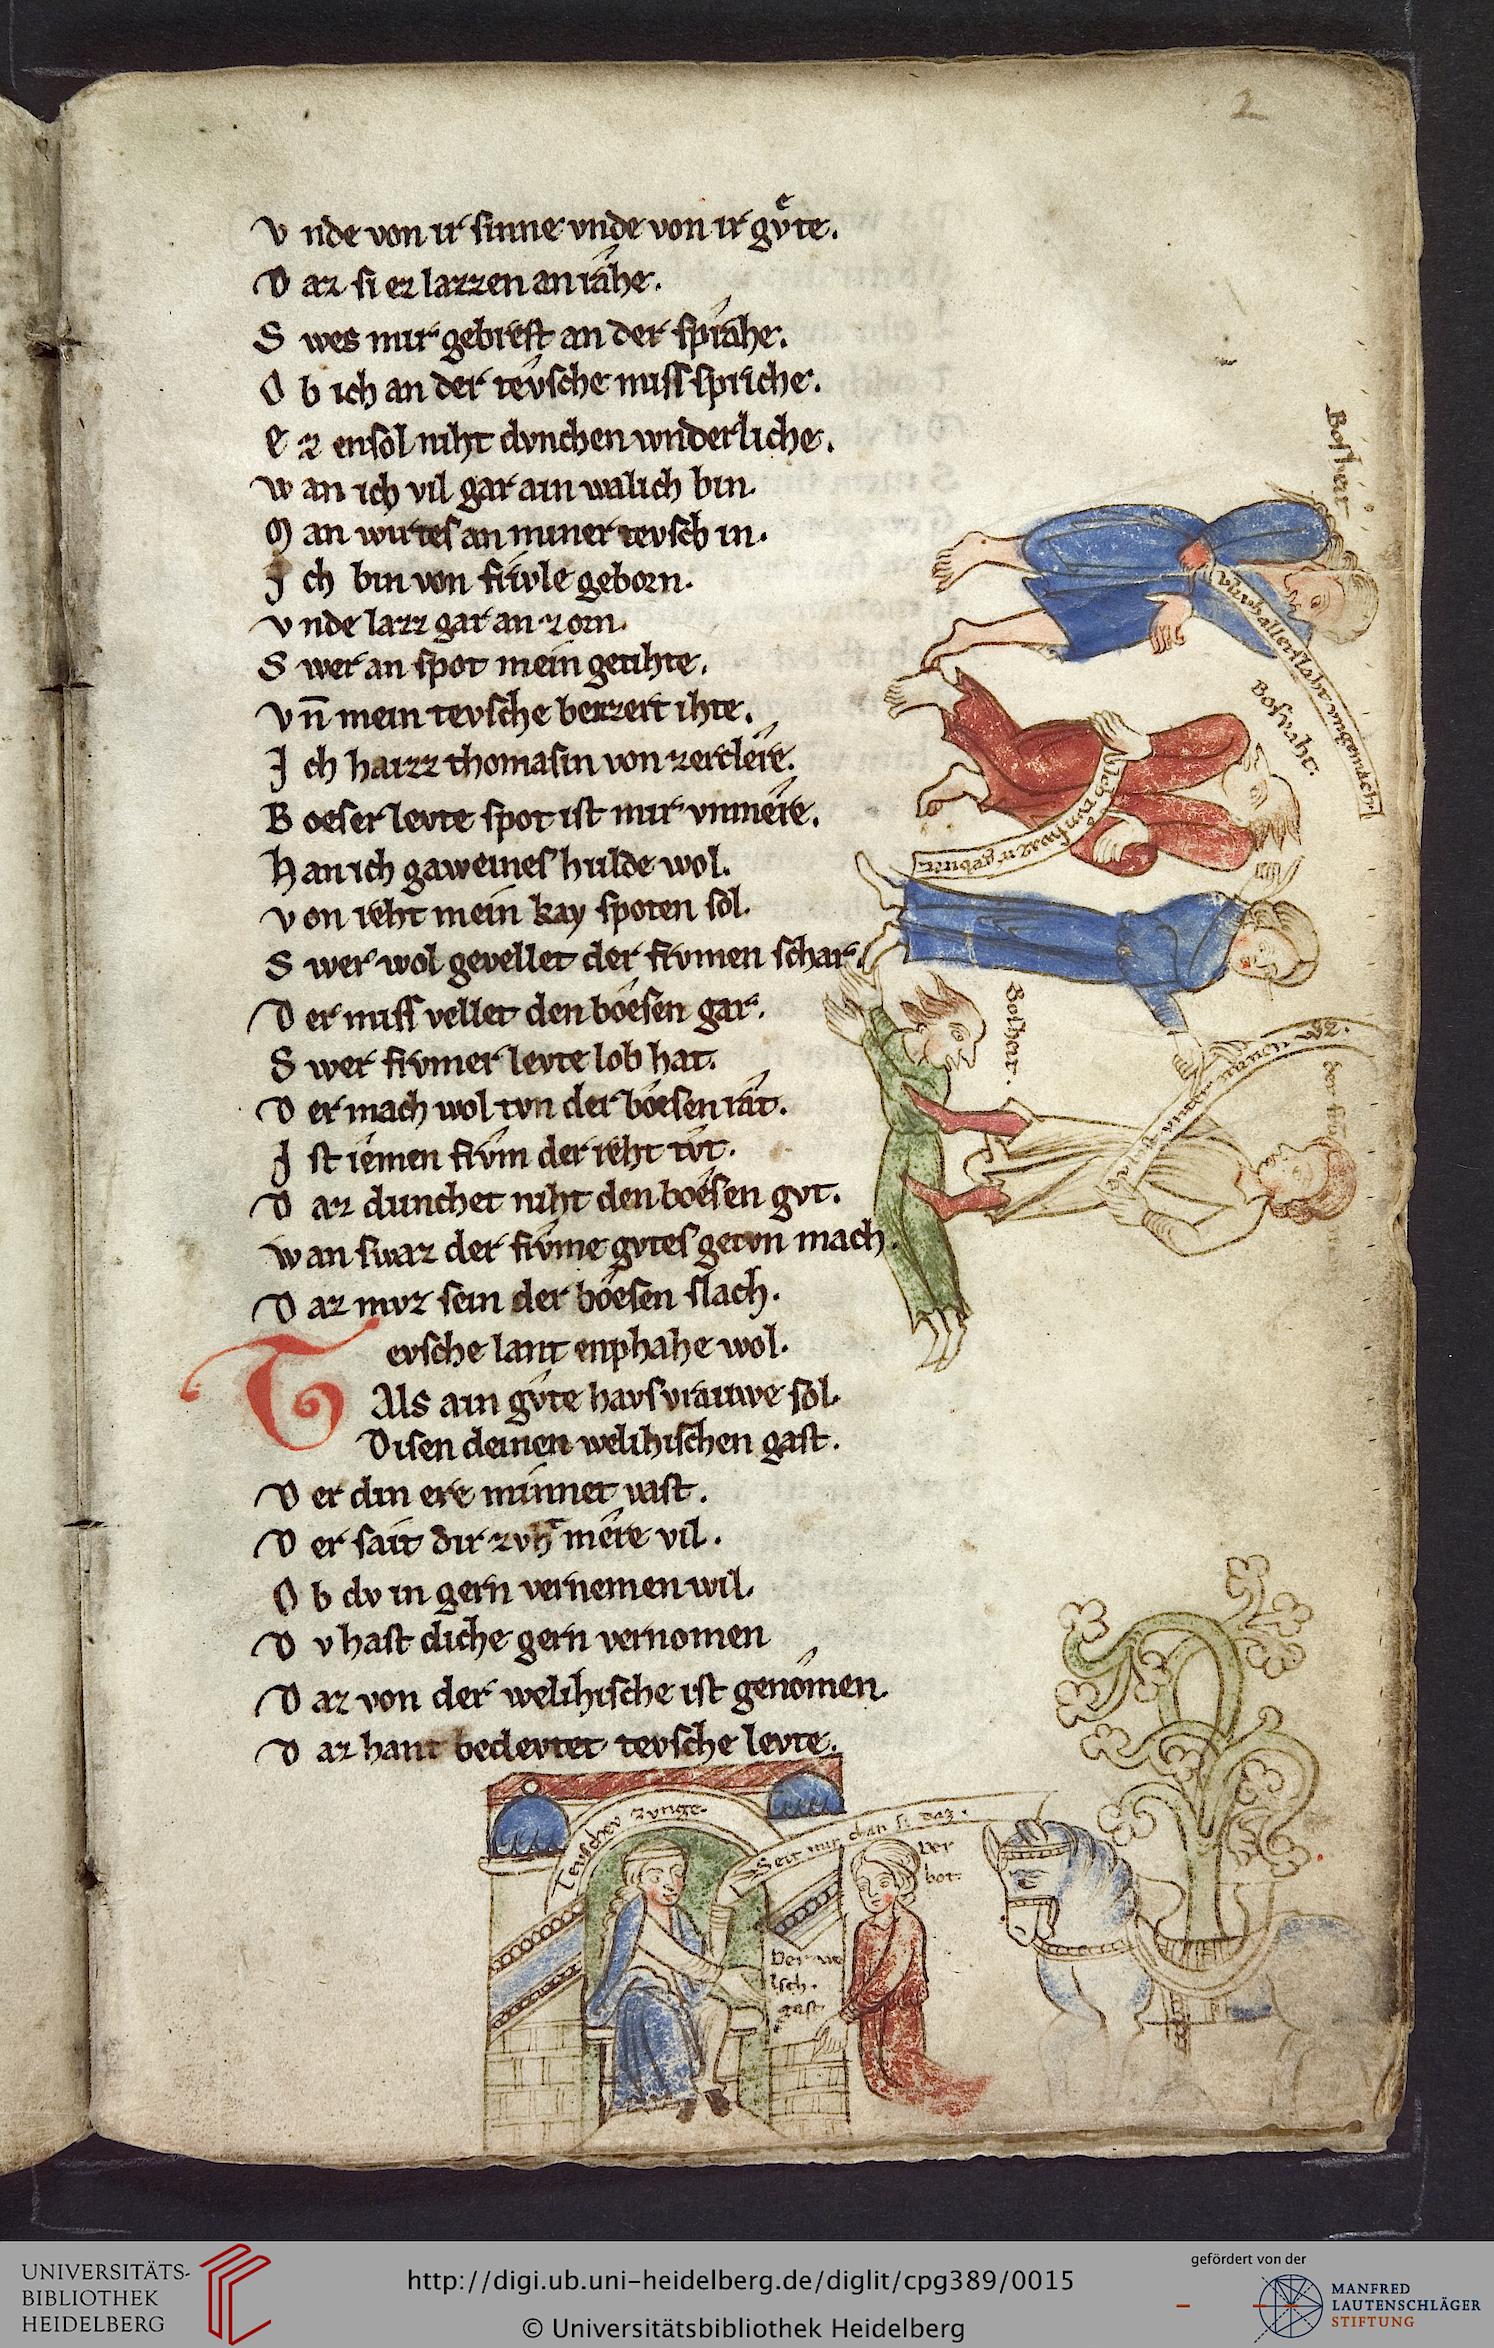 2
V nde von ir sinne vnde von ir gvͤte.
D az si ez lazzen an râhe.
S wes mir gebrêst an der sprâhe.
O b ich an der tevsche missspriche.
E z ensol niht dvnchen wnderliche.
w an ich vil gar ain walich bin.
M an wirtes an miner tevsch in.
J ch bin von frivle geborn.
v nde lazz gar an zorn.
S wer an spot mein getihte.
Vn̄ mein tevsche bezzert ihte.
J ch haizz thomasin von zerclêre.
B oeser levte spot ist mir vnmêre.
H an ich gaweines hulde wol.
v on reht mein kay spoten sol.
S wer wol gevellet der frvmen schar.
D er miss vellet den bôesen gar.
S wer frvmer levte lob hat.
D er mach wol tvn der bôesen rât.
J st iêmen frvm der reht tvt.
D az dunchet niht den boêsen gvt.
w an swaz der frvme gvtes getvn mach.
D az mvz sein der bôesen slach.
T evsche lant enphahe wol.
Als ain gvte havsvrauwe sol.
Disen deinen welihischen gast.
D er din ere minnet vast.
D er sait dir zvht mêre vil.
O b dv in gern vernemen wil.
D v hast diche gern vernomen
D az von der welihische ist genômen.
D az hant bedevtet tevsche levte.
Bosheit
aller slaht vngemach
Bosviht.
Bosheit.
der frum
tevschev zvnge.
Seit mir chan si daz.
Der
bot.
Der we
lsch.
gast
UNIVERSITÄTS-
BIBLIOTHEK
HEIDELBERG
http://digi.ub.uni-heidelberg.de/diglit/cpg389/0015
© Universitätsbibliothek Heidelberg
gefördert von der
MANFRED
LAUTENSCHLÄGER
STIFTUNG